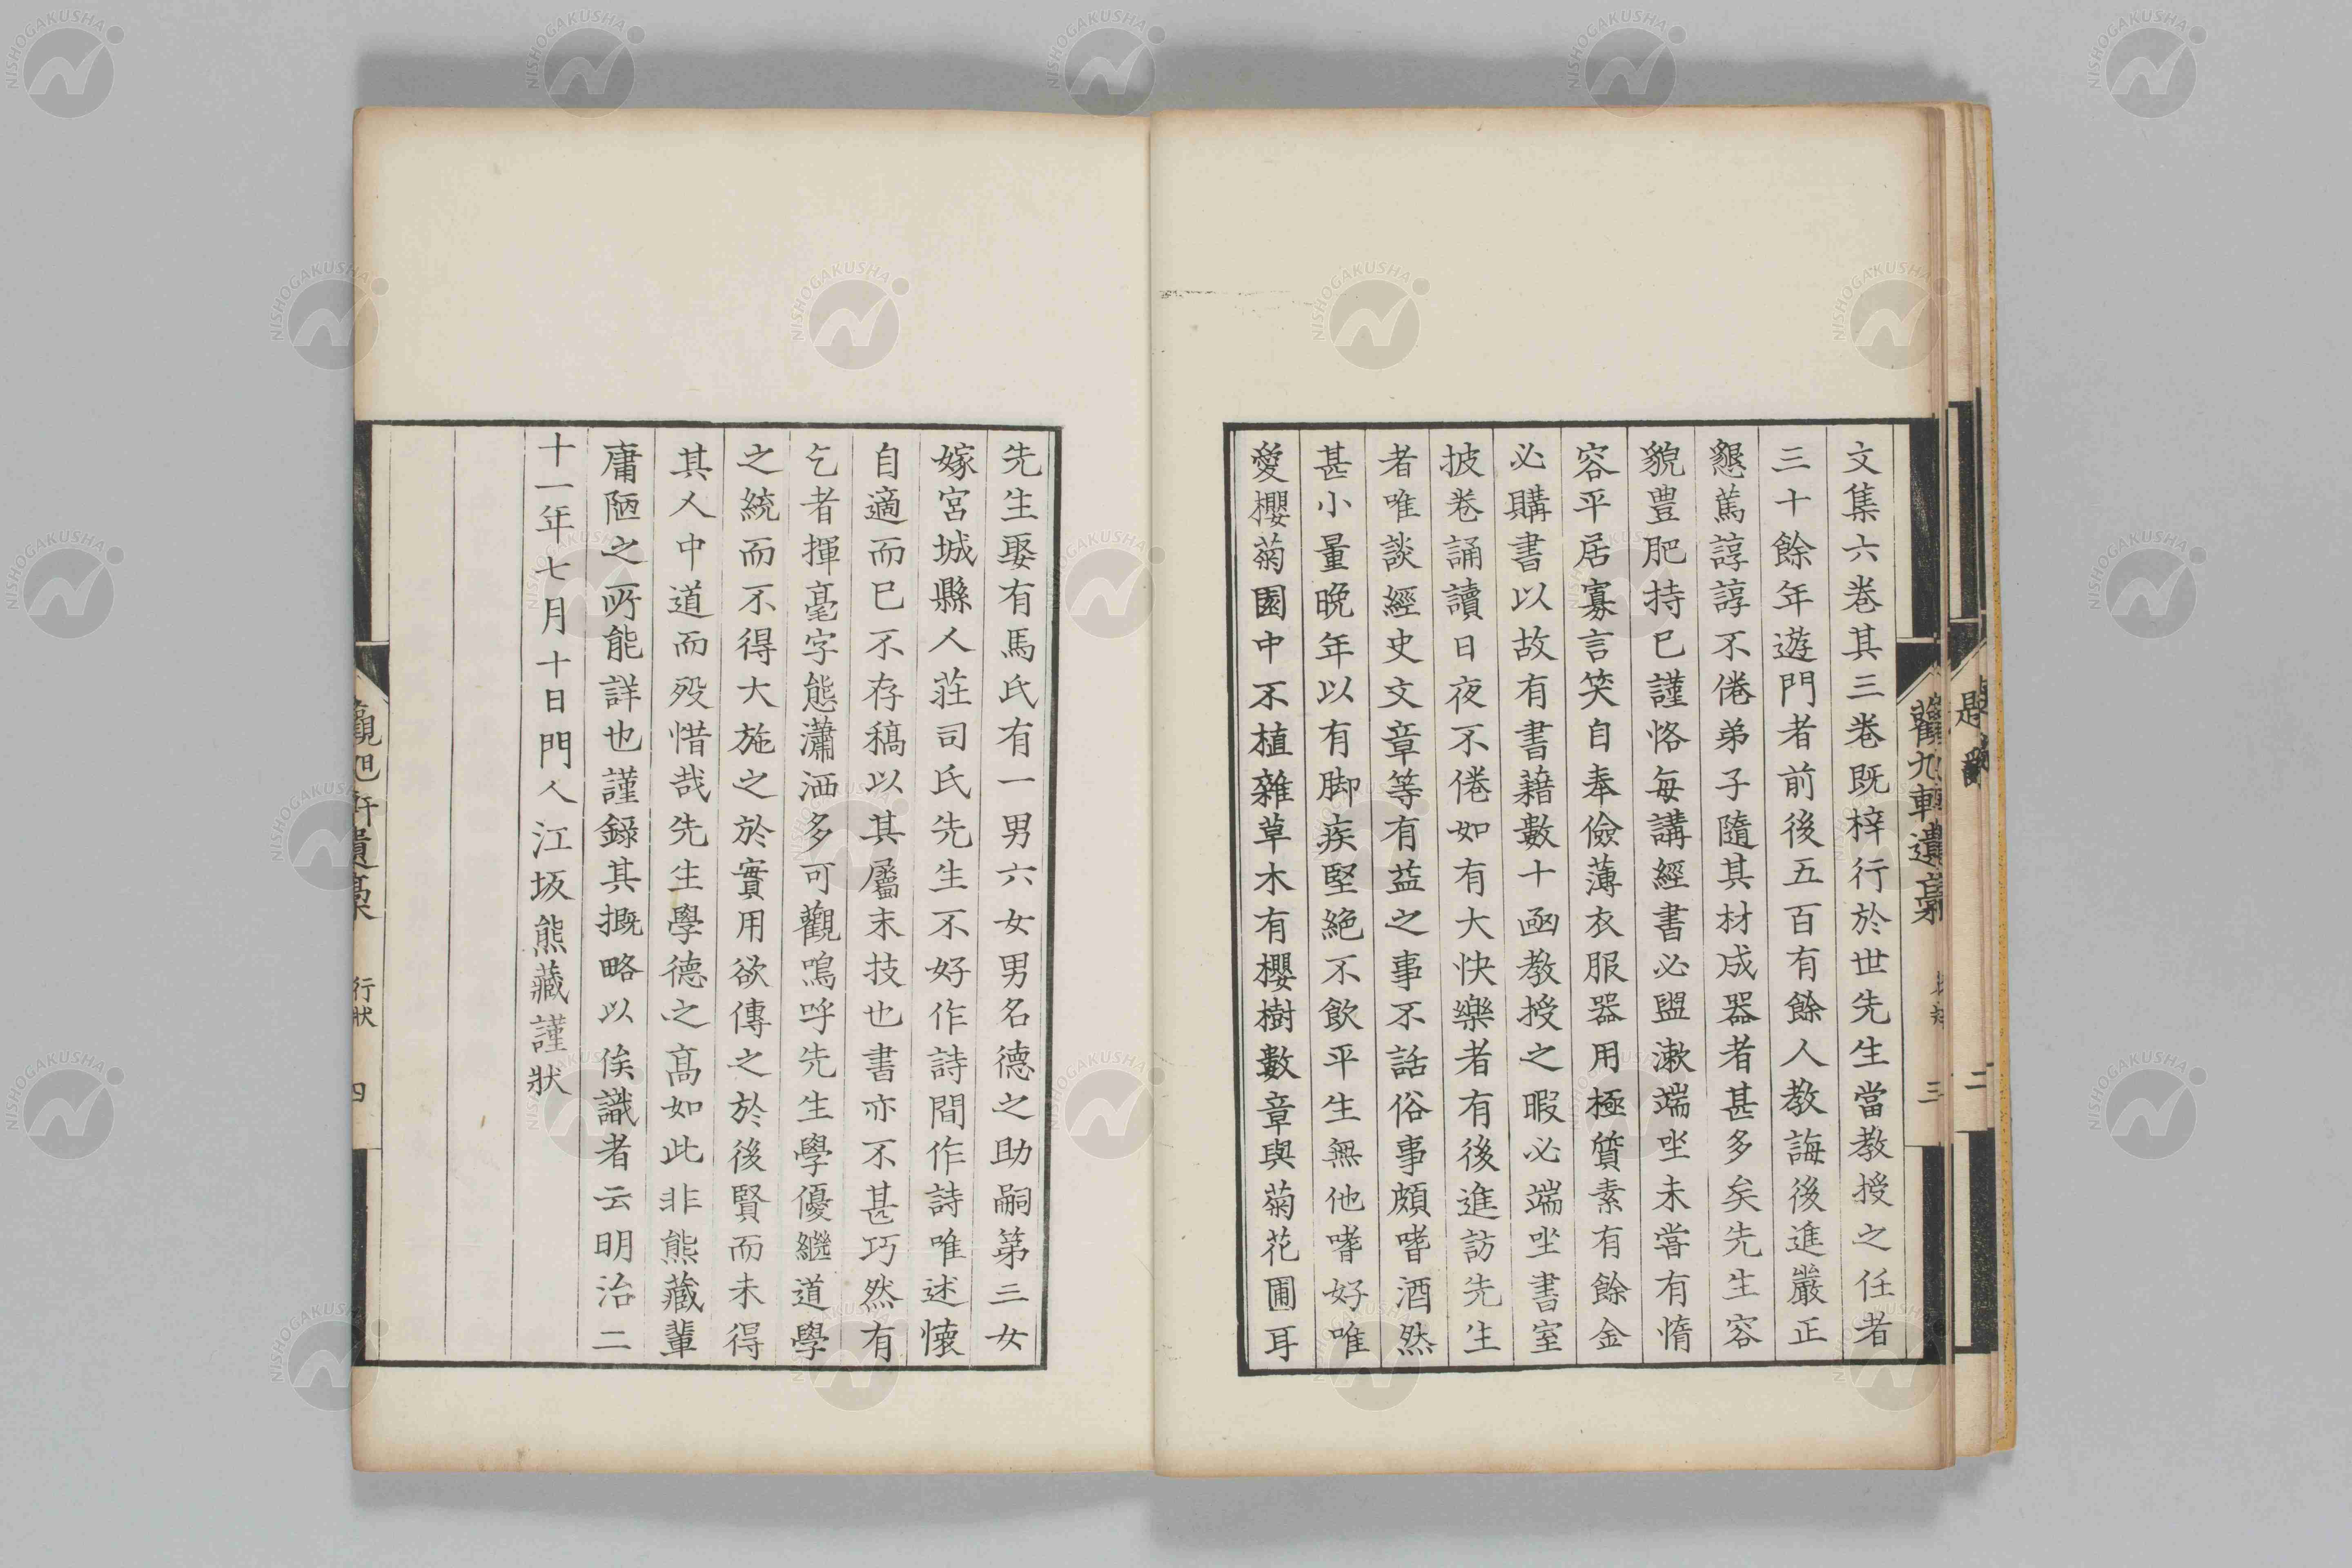 文集六卷其三卷既梓行於世先生當教授之任者
三十餘年遊門者前後五百有餘人教誨後進嚴正
懇篤諄諄不倦弟子隨其材成器者甚多矣先生容
貌豊肥持己謹恪每講經書必盥漱端坐未嘗有惰
容平居寡言笑自奉儉薄衣服器用極質素有餘金
必購書以故有書藉數十凾教授之暇必端坐書室
披卷誦讀日夜不倦如有大快樂者有後進訪先生
者唯談經史文章等有益之事不話俗事頗嗜酒然
甚小量晚年以有脚疾堅絕不飲平生無他嗜好唯
愛櫻菊園中不植雜草木有櫻樹數章與菊花圃耳
先生娶有馬氏有一男六女男名德之助嗣第三女
嫁宮城縣人莊司氏先生不好作詩間作詩唯述懷
自適而已不存稿以其屬末技也書亦不甚巧然有
乞者揮毫字態瀟洒多可觀嗚呼先生學優繼道學
之統而不得大施之於實用欲傳之於後賢而未得
其人中道而歿惜哉先生學德之髙如此非熊藏輩
庸陋之所能詳也謹錄其摡略以俟識者云明治二
十一年七月十日門人江坂熊藏謹狀
觀旭軒遺稾 行狀 四
三
二
NISHOGAKUSHA